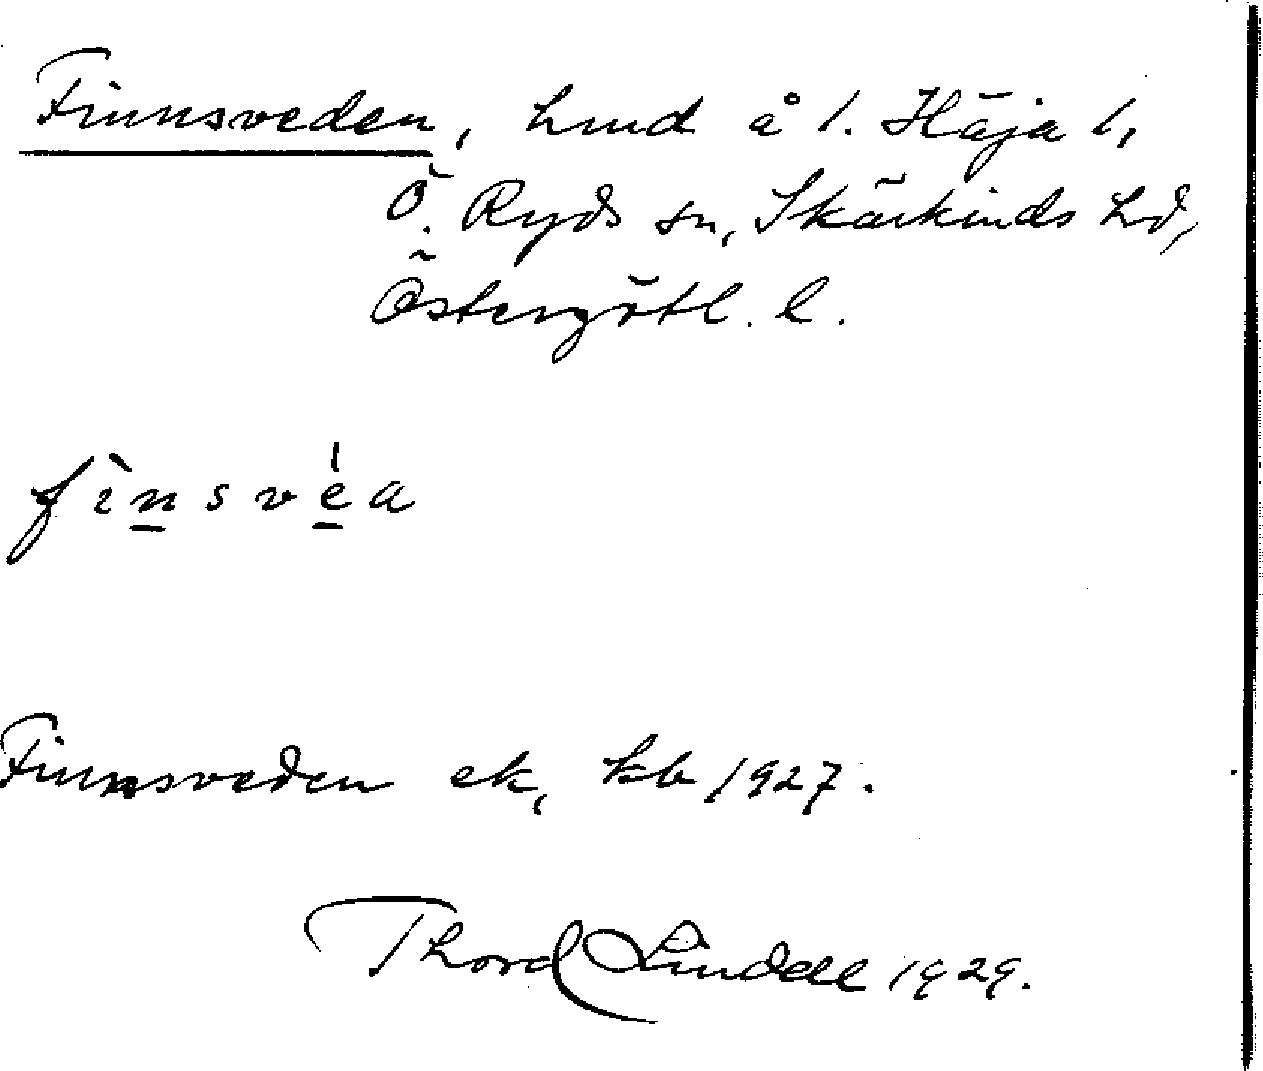 Finnsveden, hmd å 1. Häja 1,
Ö. Ryds sn, Skärkinds hd,
Östergötl. l.
fìnsvéa
Finnsveden ek, kb 1927.
Thord Lindell 1929.